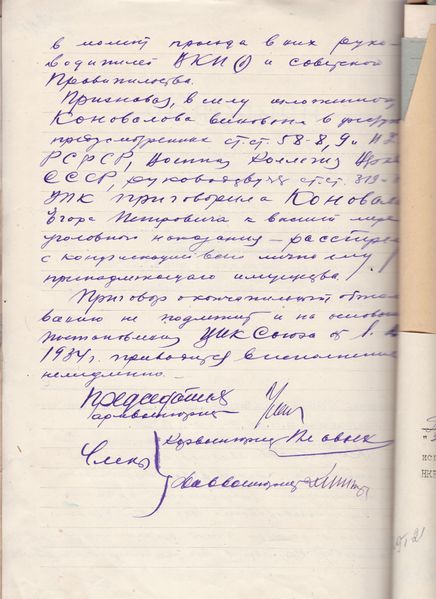 в момент проезда в них руко-
водителей ВКП(б) и советского
Правительства.
Признавая, в силу изложенного
Коновалова виновным в
предусмотренных ст.ст. 58-8, 9 и 11 УК
РСФСР, Военная Коллегия Верх
СССР, руководствуясь ст.ст. 319-
УПК приговорила Коновал
Егора Петровича к высшей мере
уголовного наказания – расстрел
с конфискацией всего лично ему
принадлежащего имущества.
Приговор окончательный обжало
ванию не подлежит и на основан
постановления ЦИК Союза от 1.
1934 г. приводится в исполнение
немедленно.–
Председатель
армвоенюрист
Члены
Корвоенюрист
Диввоенюрист
исп
НКВ